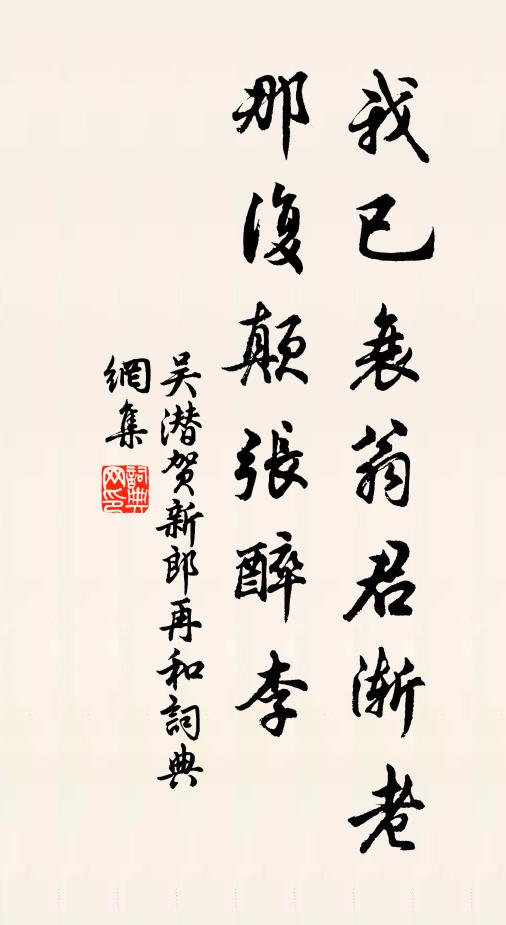 我已衰翁君渐老
那復顛張醉李
吴潜贺新郎再和詞典
網集
詞典网印